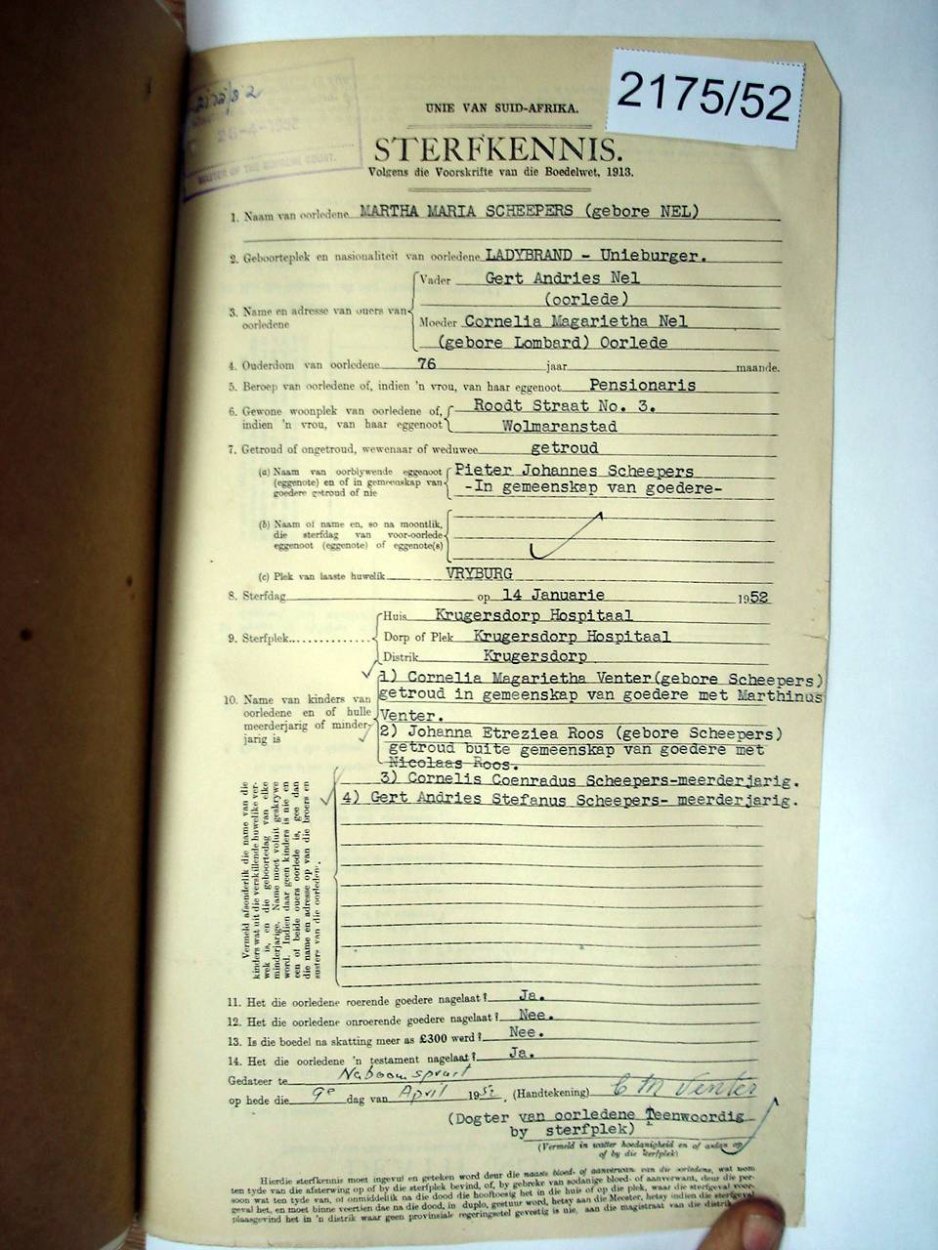 2175/52
26-4-1952
MASTER OF THE SUPREME COURT.
UNIE VAN SUID-AFRIKA.
STERFKENNIS.
Volgens die Voorskrifte van die Boedelwet, 1913.
1. Naam van oorledene MARTHA MARIA SCHEEPERS (gebore NEL)
2. Geboorteplek en nasionaliteit van oorledene LADYBRAND - Unieburger.
3. Name en adresse van ouers van oorledene
Vader Gert Andries Nel
(oorlede)
Moeder Cornelia Magarietha Nel
(gebore Lombard) Oorlede
4. Ouderdom van oorledene 76 jaar maande.
5. Beroep van oorledene of, indien 'n vrou, van haar eggenoot Pensionaris
6. Gewone woonplek van oorledene of, indien 'n vrou, van haar eggenoot
Roodt Straat No. 3.
Wolmaranstad
7. Getroud of ongetroud, wewenaar of weduwee getroud
(a) Naam van oorblywende eggenoot (eggenote) en of in gemeenskap van goedere getroud of nie
Pieter Johannes Scheepers
-In gemeenskap van goedere-
(b) Naam of name en, so na moontlik, die sterfdag van voor-oorlede eggenoot (eggenote) of eggenote(s)
(c) Plek van laaste huwelik VRYBURG
8. Sterfdag op 14 Januarie 1952
9. Sterfplek
Huis Krugersdorp Hospitaal
Dorp of Plek Krugersdorp Hospitaal
Distrik Krugersdorp
10. Name van kinders van oorledene en of hulle meerderjarig of minderjarig is
1) Cornelia Magarietha Venter(gebore Scheepers)
getroud in gemeenskap van goedere met Marthinus
Venter.
2) Johanna Etreziea Roos (gebore Scheepers)
getroud buite gemeenskap van goedere met
Nicolaas Roos.
3) Cornelis Coenradus Scheepers-meerderjarig.
4) Gert Andries Stefanus Scheepers- meerderjarig.
Vermeld afsonderlik die name van die
kinders wat uit die verskillende huwelike ver-
wek is, en die geboortedag van elke
minderjarige. Name moet voluit geskrywe
word. Indien daar geen kinders is nie en
een of beide ouers oorlede is, gee dan
die name en adresse op van die broers en
susters van die oorledene.
11. Het die oorledene roerende goedere nagelaat? Ja.
12. Het die oorledene onroerende goedere nagelaat? Nee.
13. Is die boedel na skatting meer as £300 werd? Nee.
14. Het die oorledene 'n testament nagelaat? Ja.
Gedateer te Naboomspruit
op hede die 9e dag van April 1952, (Handtekening) C M Venter
(Dogter van oorledene Teenwoordig
by sterfplek)
(Vermeld in watter hoedanigheid en of anders op
of by die sterfplek)
Hierdie sterfkennis moet ingevul en geteken word deur die naaste bloed- of aanverwant van die oorledene, wat tesamen
ten tyde van die afsterwing op of by die sterfplek bevind, of, by gebreke van sodanige bloed- of aanverwant, deur die per-
soon wat ten tyde van, of onmiddelik na die dood die hooftoesig het in die huis of op die plek, waar die sterfgeval voor-
geval het, en moet binne veertien dae na die dood, in duplo, gestuur word, hetsy aan die Meester, hetsy indien die sterfgeval
plaasgevind het in 'n distrik waar geen provinsiale regeringsetel gevestig is nie, aan die magistraat van die distrik